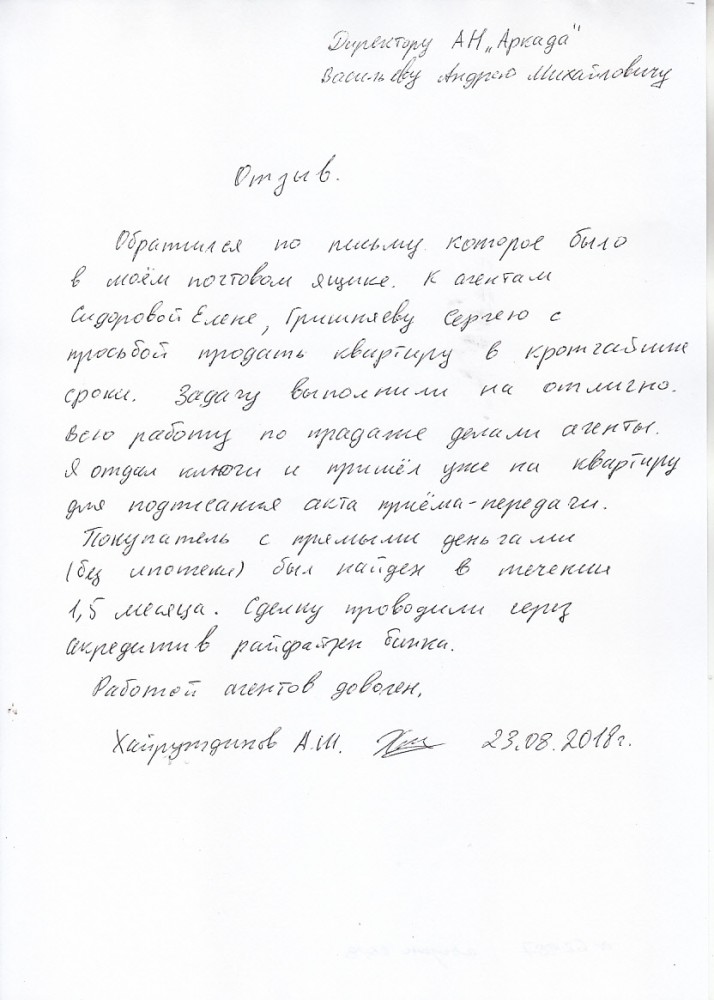 Директору АН „Аркада"
Васильеву Андрею Михайловичу
Отзыв.
Обратился по письму которое было
в моём почтовом ящике. К агентам
Сидоровой Елене, Гришняеву Сергею с
просьбой продать квартиру в кротчайшие
сроки. Задачу выполнили на отлично.
Всю работу по прадаже делали агенты.
Я отдал ключи и пришёл уже на квартиру
для подписания акта приёма-передачи.
Покупатель с прямыми деньгами
(без ипотеки) был найден в течении
1,5 месяца. Сделку проводили через
акредитив райфайзен банка.
Работой агентов доволен.
А.Ш. 23.08.2018г.